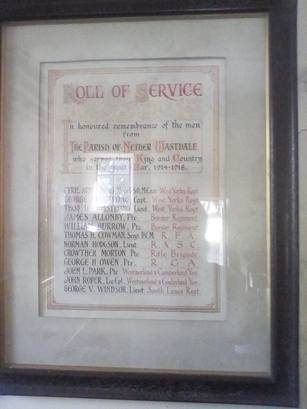 ROLL OF SERVICE
In honoured remembrance of the men
from
THE PARISH OF NETHER WASTDALE
who served their King and Country
in the Great War. 1914-1918.
CYRIL West Yorks Regt.
GEORGE Capt. West Yorks Regt.
THOS. ARMSTRONG, Lieut. West Yorks Regt.
JAMES ALLONBY, Pte. Border Regiment
WILLIAM BURROW, Pte. Border Regiment
THOMAS H. COWMAN, Sergt. DCM. R. F. A.
NORMAN HODGSON, Lieut. R. A. S. C.
CROWTHER MORTON, Pte. Rifle Brigade
GEORGE H. OWEN, Pte. R G A
JOHN L. PARK, Pte. Westmorland & Cumberland Yeo.
JOHN ROPER, Westmorland & Cumberland Yeo.
GEORGE V. WINDSOR, Lieut. South Lancs Regt.